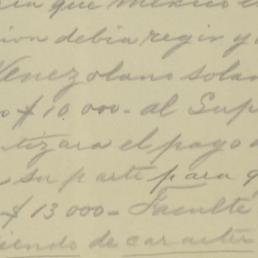 que Mexico
debia regir y
Venezolano sola
$10.000- al Sup
tizara el pago
su parte para q
$13000- Faculté
iendo de caracter